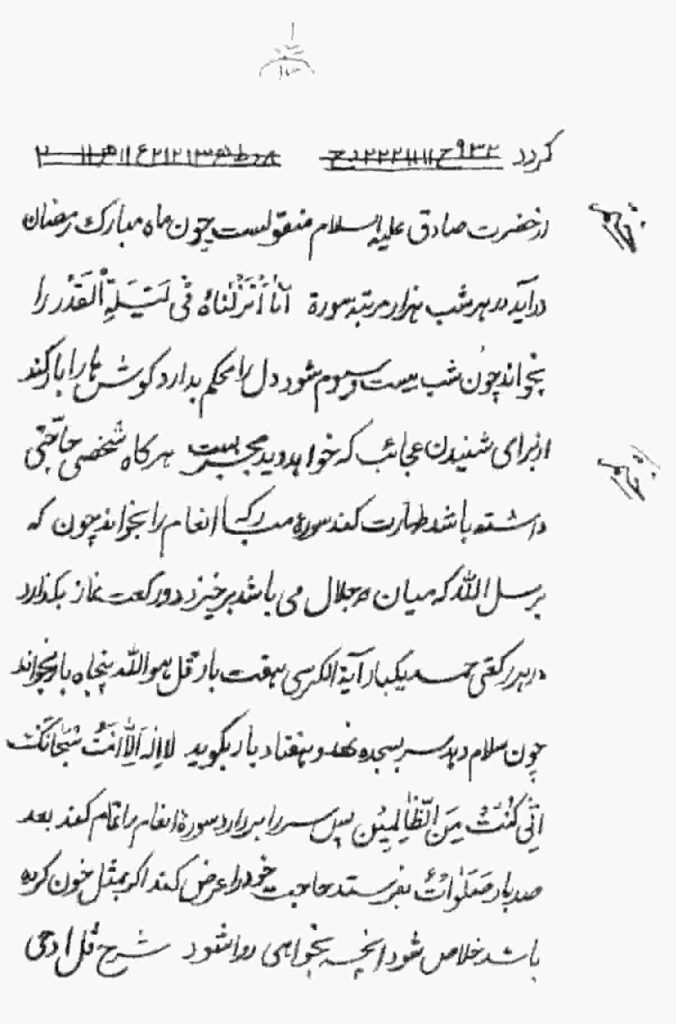 گردد
از حضرت صادق علیه السلام منقولست چون ماه مبارک رمضان
درآید در هر شب هزار مرتبه سورهٔ اِنّا اَنْزَلْناهُ فی لَیْلَةِ الْقَدْر را
بخواند چون شب بیست و سوم شود دل را محکم بدارد گوش ها را باز کند
از برای شنیدن عجائب که خواهد دید مجرب است هرگاه شخصی حاجتی
داشته باشد طهارت کند سورهٔ مبارکه انعام را بخواند چون که
برسل الله که میان دو جلال می باشد برخیزد دو رکعت نماز بگذارد
در هر رکعتی حمد یکبار آیة الکرسی هفت بار قل هو الله پنجاه بار بخواند
چون سلام دهد سر بسجده نهد و هفتاد بار بگوید لا اِلٰهَ اِلّا اَنْتَ سُبْحانَکَ
اِنّی کُنْتُ مِنَ الظّالِمینَ پس سر را بردارد سورهٔ انعام را تمام کند بعد
صد بار صَلَواتْ بفرستد حاجت خود را عرض کند اگر بمثل خون کرده
باشد خلاص شود انچه بخواهی روا شود شرح قُل اوحی